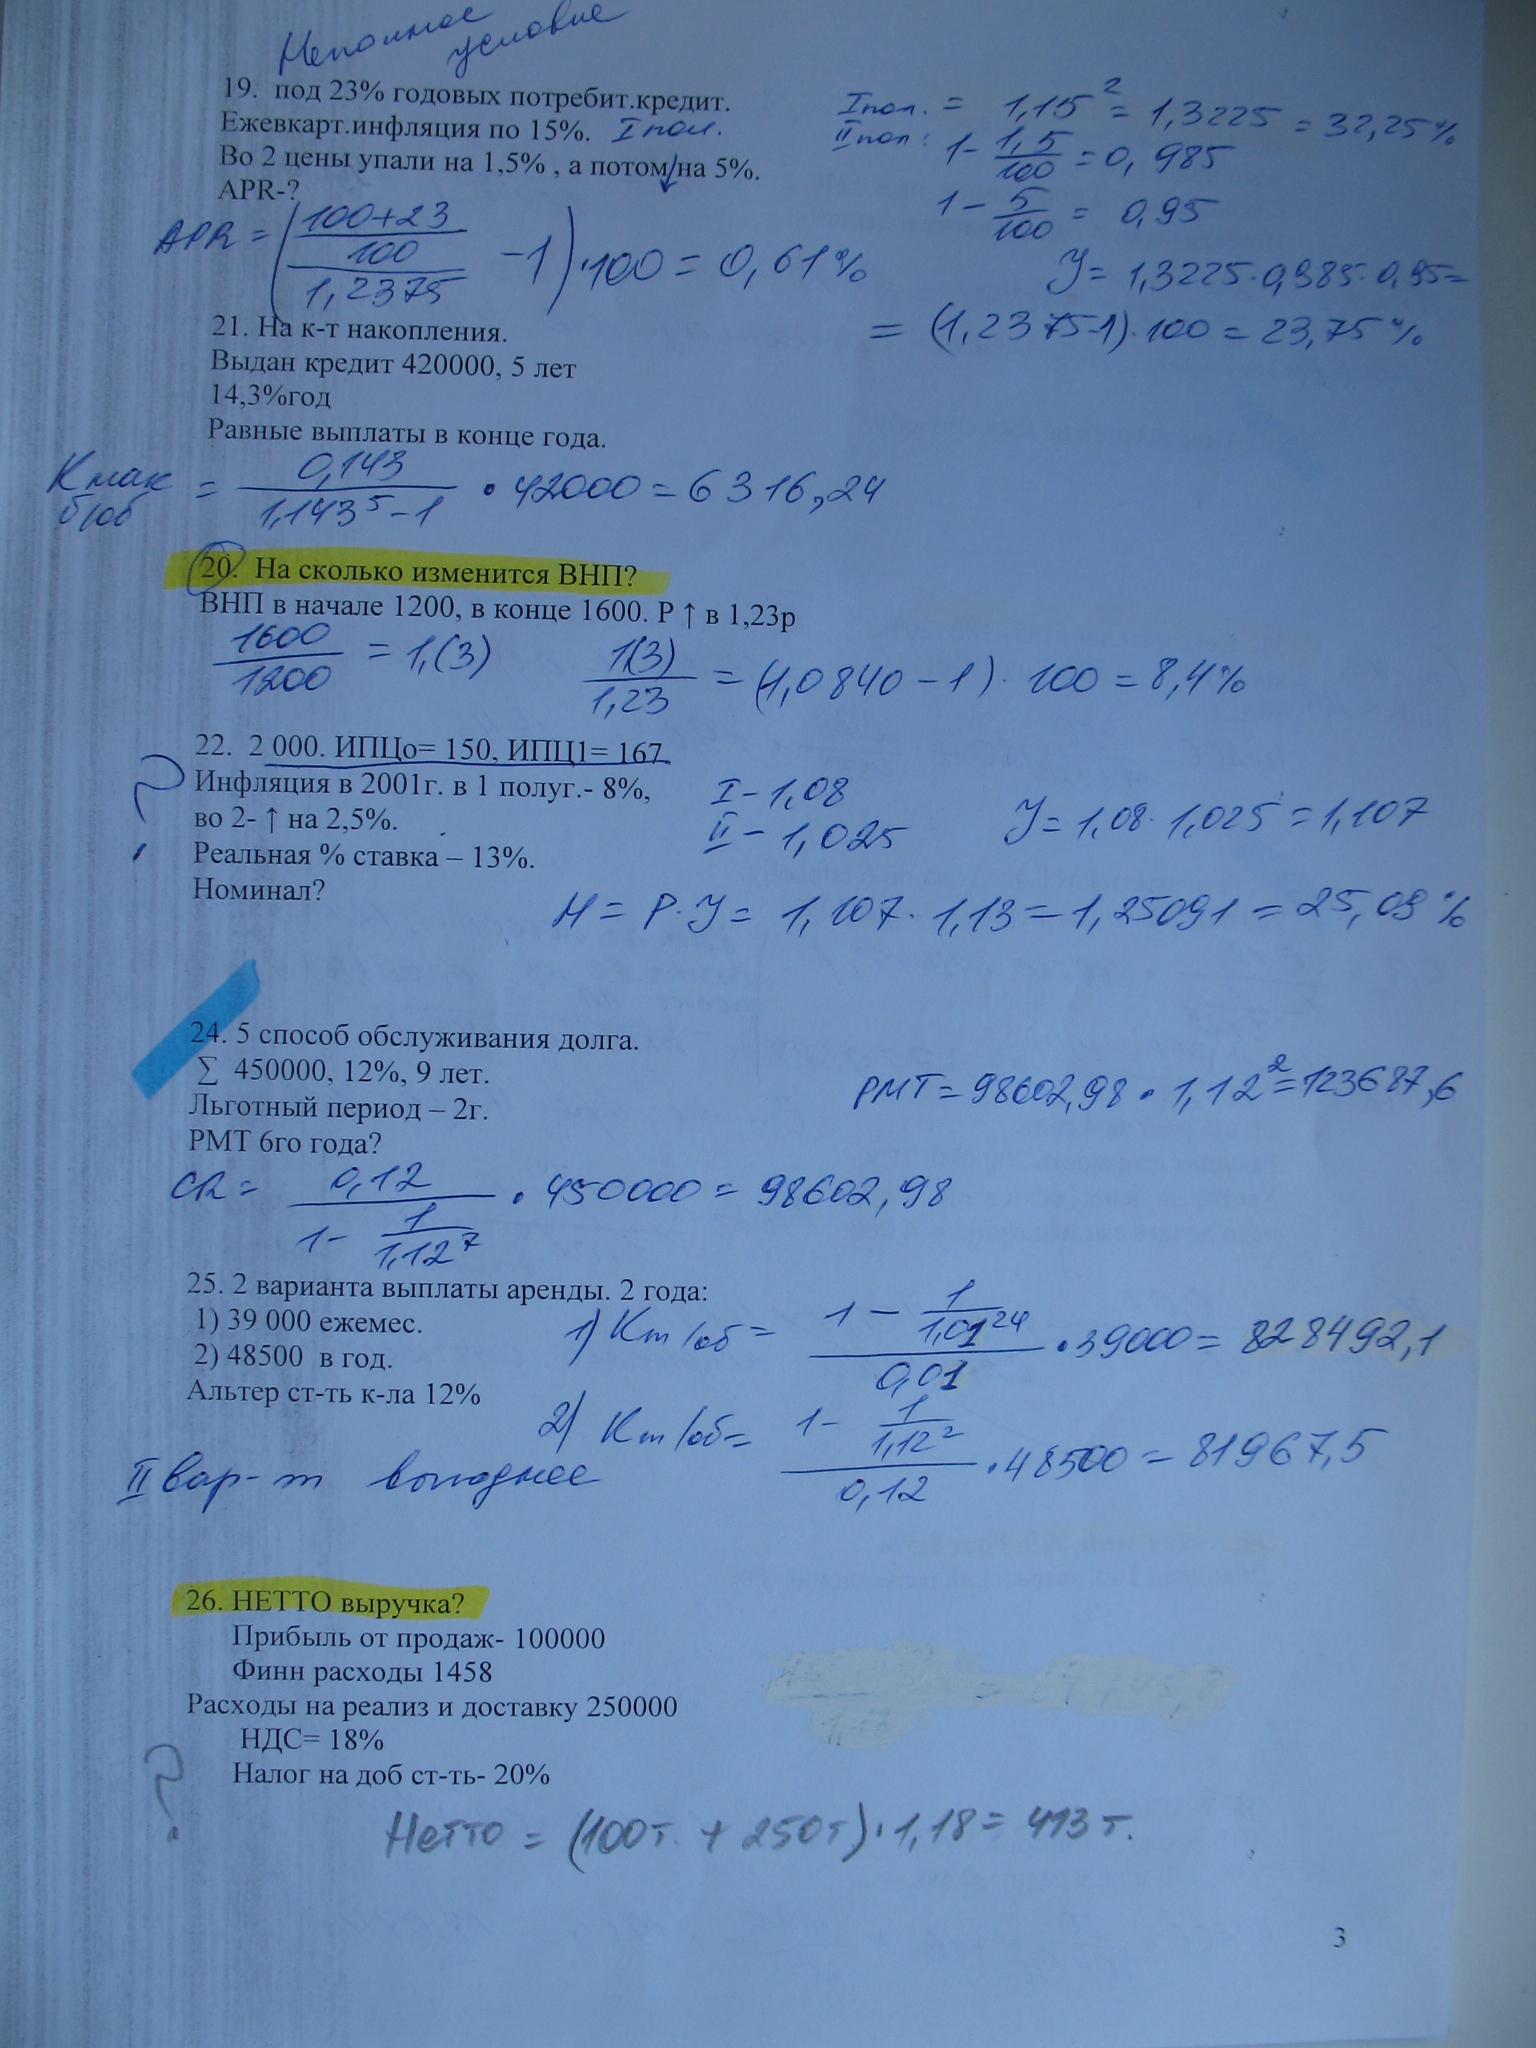 Неполное
условие
19. под 23% годовых потребит.кредит.
Ежевкарт.инфляция по 15%. I пол.
Во 2 цены упали на 1,5% , а потом/на 5%.
APR-?
I пол. = 1,15² = 1,3225 = 32,25%
II пол: 1 - 1,5/100 = 0,985
1 - 5/100 = 0,95
APR = ((100+23)/100 / 1,2375 - 1) · 100 = 0,61%
J = 1,3225 · 0,985 · 0,95 =
= (1,2375-1) · 100 = 23,75%
21. На к-т накопления.
Выдан кредит 420000, 5 лет
14,3%год
Равные выплаты в конце года.
К нак б/об = 0,143 / (1,143⁵ - 1) · 42000 = 6316,24
20. На сколько изменится ВНП?
ВНП в начале 1200, в конце 1600. Р ↑ в 1,23р
1600/1200 = 1,(3) 1(3)/1,23 = (1,0840 - 1) · 100 = 8,4%
22. 2 000. ИПЦо= 150, ИПЦ1= 167
? Инфляция в 2001г. в 1 полуг.- 8%,
во 2- ↑ на 2,5%.
Реальная % ставка – 13%.
Номинал?
I - 1,08
II - 1,025
J = 1,08 · 1,025 = 1,107
Н = Р · J = 1,107 · 1,13 = 1,25091 = 25,09%
24. 5 способ обслуживания долга.
∑ 450000, 12%, 9 лет.
Льготный период – 2г.
РМТ 6го года?
РМТ = 98602,98 · 1,12² = 123687,6
CR = 0,12 / (1 - 1/1,12⁷) · 450000 = 98602,98
25. 2 варианта выплаты аренды. 2 года:
1) 39 000 ежемес.
2) 48500 в год.
Альтер ст-ть к-ла 12%
1) Кт/об = (1 - 1/1,01²⁴) / 0,01 · 39000 = 828492,1
2) Кт/об = (1 - 1/1,12²) / 0,12 · 48500 = 81967,5
II вар-т выгоднее
26. НЕТТО выручка?
Прибыль от продаж- 100000
Финн расходы 1458
Расходы на реализ и доставку 250000
НДС= 18%
Налог на доб ст-ть- 20%
?
Нетто = (100т. + 250т) · 1,18 = 413 т.
3